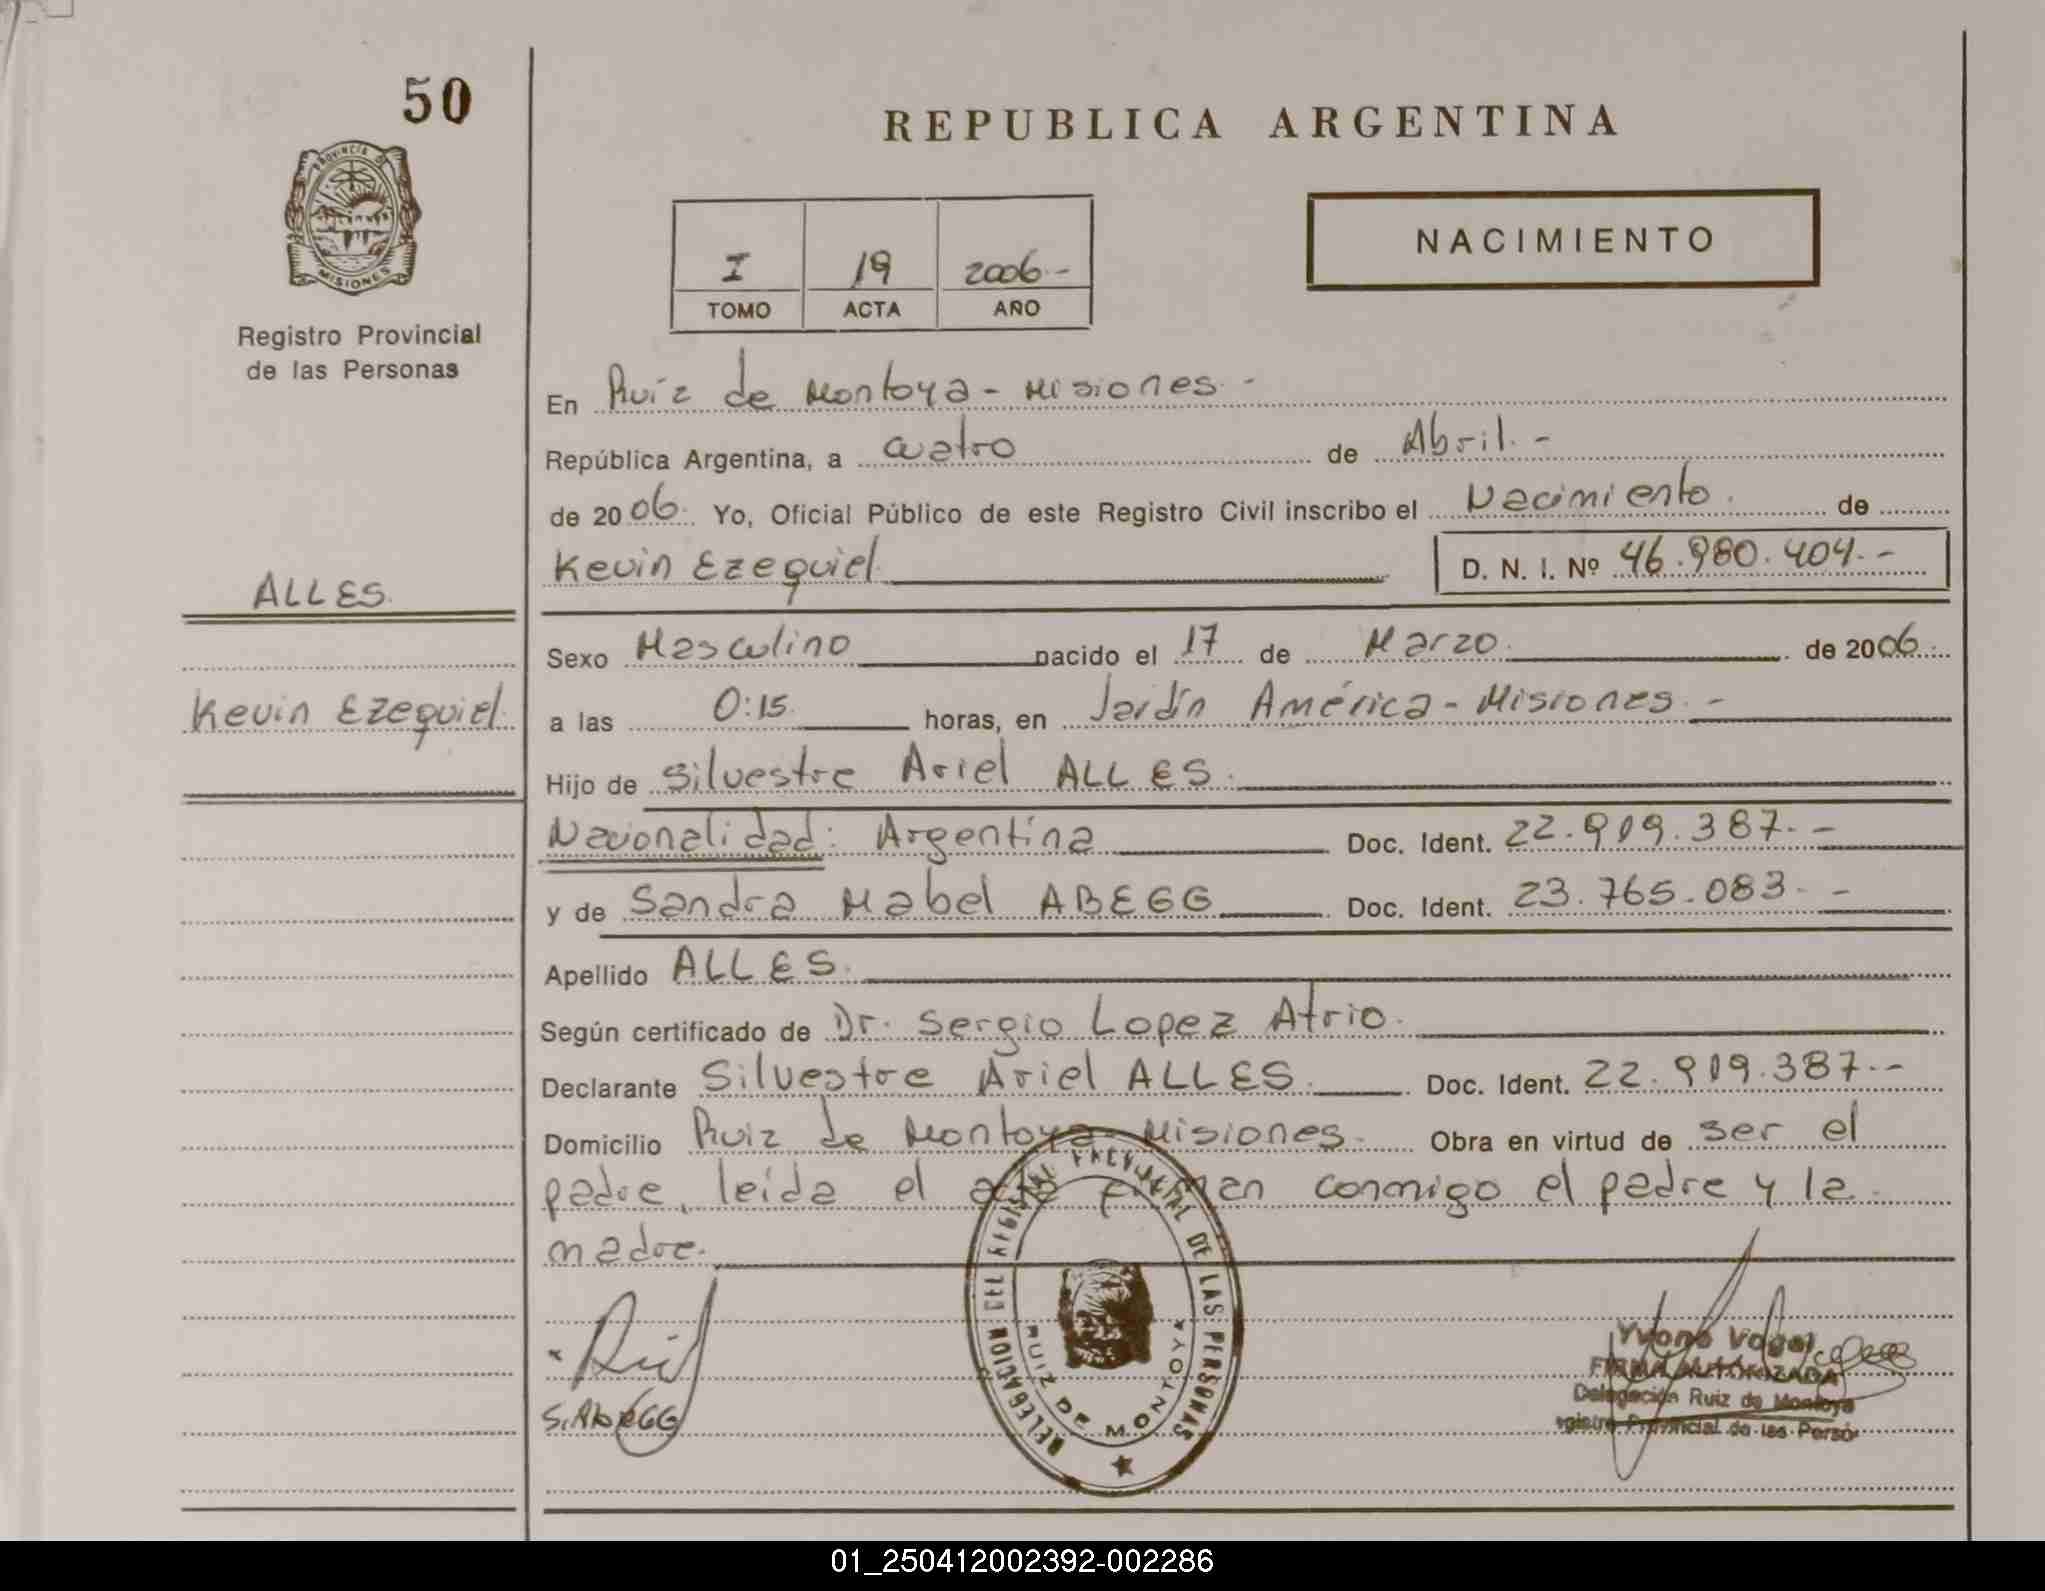 50
REPUBLICA ARGENTINA
PROVINCIA DE
MISIONES
Registro Provincial
de las Personas
I 19 2006.-
TOMO ACTA AÑO
NACIMIENTO
En Ruíz de Montoya - Misiones.-
República Argentina, a cuatro de Abril.-
de 2006. Yo, Oficial Público de este Registro Civil inscribo el Nacimiento. de
Kevin Ezequiel. D. N. I. Nº 46.980.404.-
ALLES.
Kevin Ezequiel.
Sexo Masculino nacido el 17 de Marzo. de 2006.
a las 0:15. horas, en Jardín América - Misiones.-
Hijo de Silvestre Ariel ALLES.
Nacionalidad: Argentina Doc. Ident. 22.919.387.-
y de Sandra Mabel ABEGG Doc. Ident. 23.765.083.-
Apellido ALLES.
Según certificado de Dr. Sergio Lopez Atrio.
Declarante Silvestre Ariel ALLES. Doc. Ident. 22.919.387.-
Domicilio Ruiz de Montoya - Misiones. Obra en virtud de ser el
padre, leída el acta firman conmigo el padre y la
madre.
DELEGACION DEL REGISTRO PROVINCIAL DE LAS PERSONAS
RUIZ DE MONTOYA
S. AbeGG
FIRMA AUTORIZADA
Delegación Ruiz de Montoya
Provincial de las
01_250412002392-002286